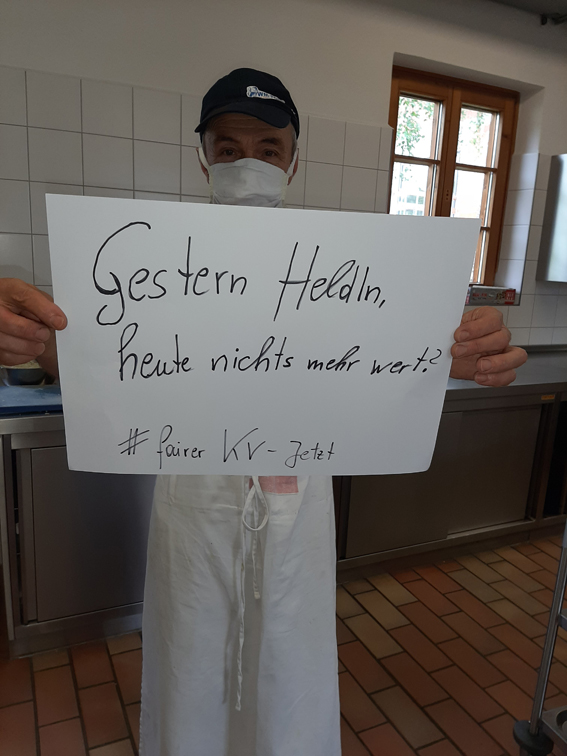 Gestern HeldIn,
heute nichts mehr wert?
# fairer KV-Jetzt